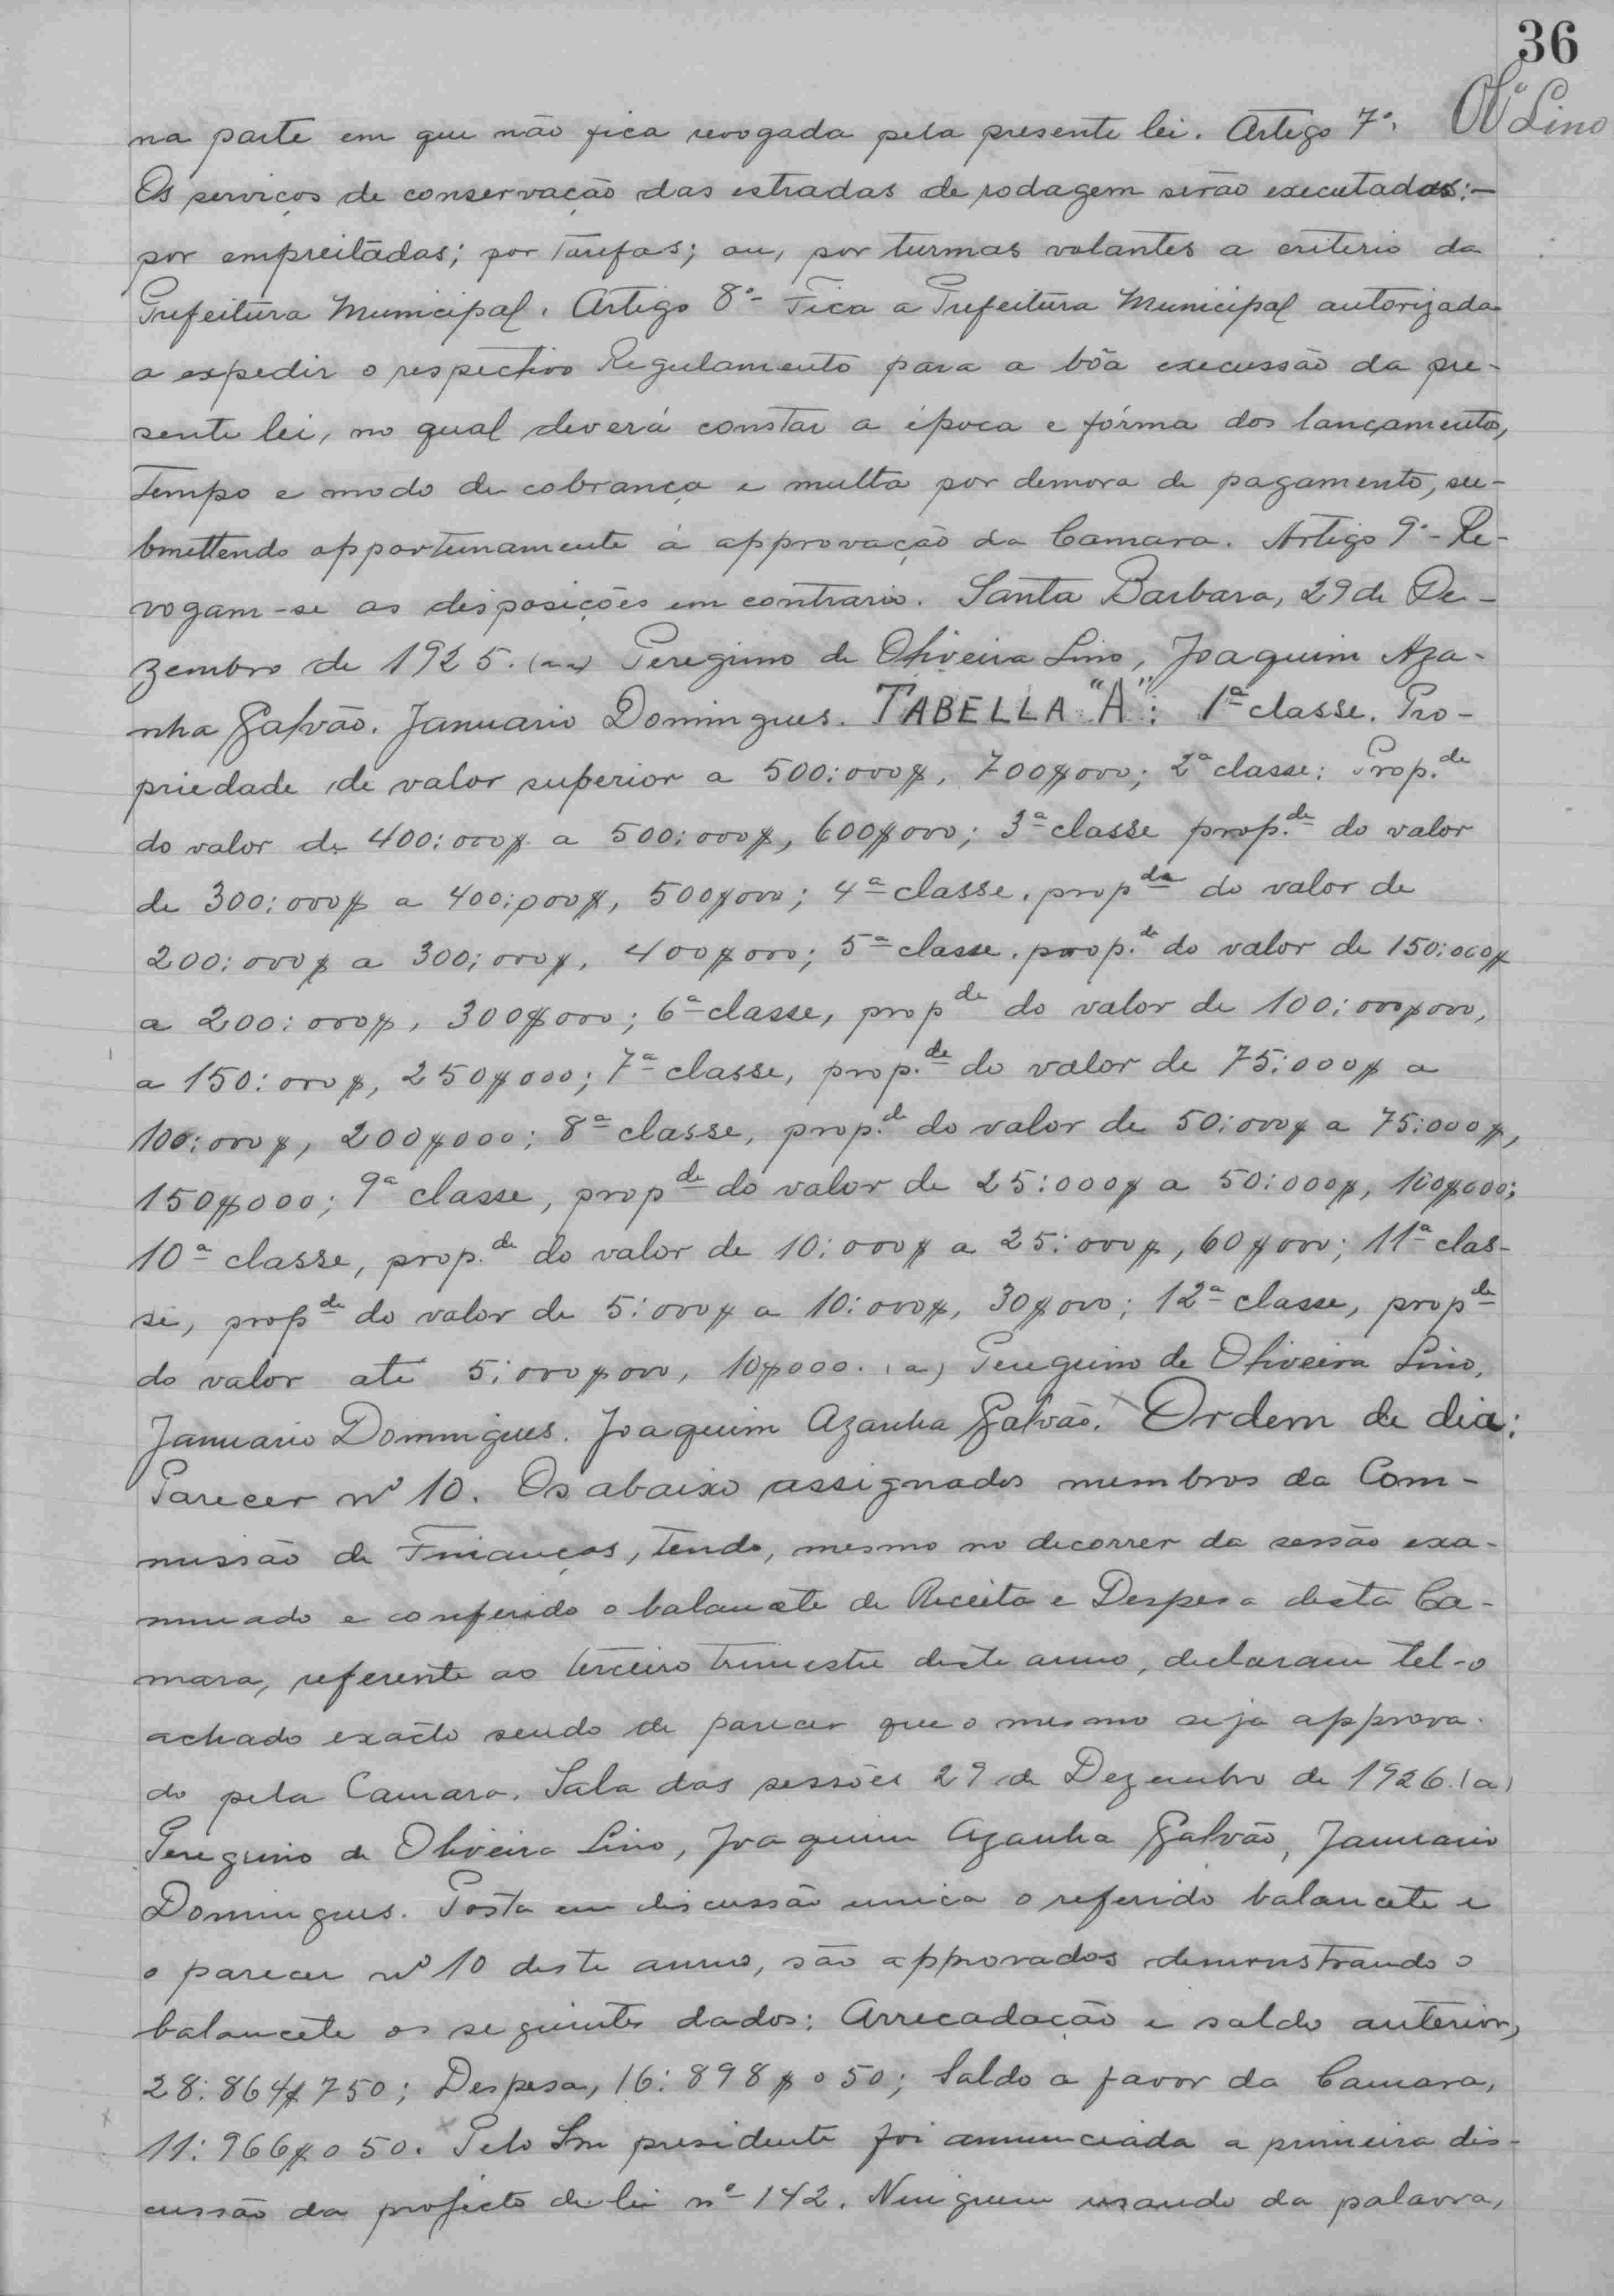 36
Olᵃ Lino
na parte em que não fica revogada pela presente lei. Artigo 7º:
Os serviços de conservação das estradas de rodagem serão executados:-
por empreitadas; por tarefas; ou, por turmas volantes a criterio da
Prefeitura Municipal. Artigo 8º- Fica a Prefeitura Municipal autorizada
a expedir o respectivo Regulamento para a bôa execussão da pre-
sente lei, no qual deverá constar a época e fórma dos lançamentos,
tempo e modo de cobrança e multa por demora de pagamento, su-
bmettendo opportunamente á approvação da Camara. Artigo 9º- Re-
vogam-se as disposições em contrario. Santa Barbara, 29 de De-
zembro de 1925. (aa) Peregrino de Oliveira Lino, Joaquim Aza-
nha Galvão. Januario Domingues. TABELLA "A": 1ª classe. Pro-
priedade de valor superior a 500:000$, 700$000; 2ª classe: Prop.de
do valor de 400:000$ a 500:000$, 600$000; 3ª classe prop.de do valor
de 300:000$ a 400:000$, 500$000; 4ª classe, propde do valor de
200:000$ a 300:000$, 400$000; 5ª classe, prop.de do valor de 150:000$
a 200:000$, 300$000; 6ª classe, propde do valor de 100:000$000,
a 150:000$, 250$000; 7ª classe, prop.de do valor de 75:000$ a
100:000$, 200$000; 8ª classe, prop.de do valor de 50:000$ a 75:000$,
150$000; 9ª classe, propde do valor de 25:000$ a 50:000$, 100$000;
10ª classe, prop.de do valor de 10:000$ a 25:000$, 60$000; 11ª clas-
se, propde do valor de 5:000$ a 10:000$, 30$000; 12ª classe, propde
do valor até 5:000$000, 10$000. (a) Peregrino de Oliveira Lino,
Januario Domingues. Joaquim Azanha Galvão. Ordem de dia:
Parecer nº 10. Os abaixo assignados membros da Com-
missão de Finanças, tendo, mesmo no decorrer da sessão exa-
minado e conferido o balancete de Receita e Despesa desta Ca-
mara, referente ao terceiro trimestre deste anno, declaram tel-o
achado exacto sendo de parecer que o mesmo seja approva-
do pela Camara. Sala das sessões 29 de Dezembro de 1926. (a)
Peregrino de Oliveira Lino, Joaquim Azanha Galvão, Januario
Domingues. Posta em discussão unica o referido balancete e
o parecer nº 10 deste anno, são approvados demonstrando o
balancete os seguintes dados: Arrecadação e saldo anterior,
28:864$750; Despesa, 16:898$050; Saldo a favor da Camara,
11:966$050. Pelo Snr presidente foi annunciada a primeira dis-
cussão da projecto de lei nº 142. Ninguem usando da palavra,